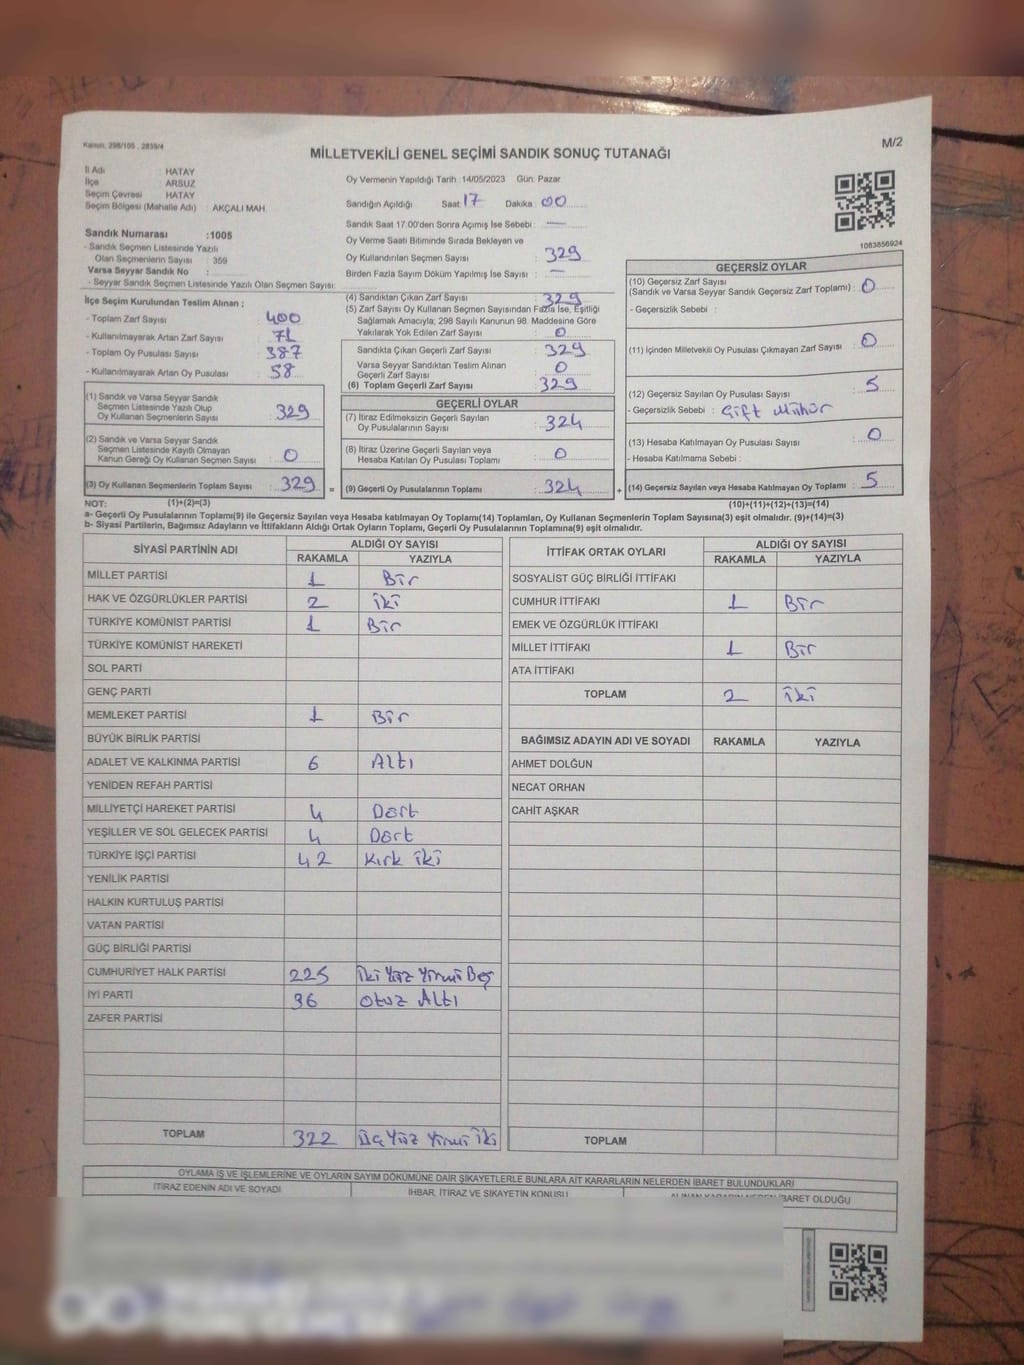 Kanun, 298/105 , 2839/4
M/2
MİLLETVEKİLİ GENEL SEÇİMİ SANDIK SONUÇ TUTANAĞI
İl Adı : HATAY
İlçe : ARSUZ
Seçim Çevresi : HATAY
Seçim Bölgesi (Mahalle Adı) : AKÇALI MAH.
Sandık Numarası :1005
- Sandık Seçmen Listesinde Yazılı
Olan Seçmenlerin Sayısı : 359
Varsa Seyyar Sandık No :
- Seyyar Sandık Seçmen Listesinde Yazılı Olan Seçmen Sayısı:
Oy Vermenin Yapıldığı Tarih :14/05/2023 Gün: Pazar
Sandığın Açıldığı Saat 17 Dakika 00
Sandık Saat 17.00'den Sonra Açımış İse Sebebi : —
Oy Verme Saati Bitiminde Sırada Bekleyen ve
Oy Kullandırılan Seçmen Sayısı : 329
Birden Fazla Sayım Döküm Yapılmış İse Sayısı : —
1083856924
İlçe Seçim Kurulundan Teslim Alınan ;
- Toplam Zarf Sayısı : 400
- Kullanılmayarak Artan Zarf Sayısı : 71
- Toplam Oy Pusulası Sayısı : 387
- Kullanılmayarak Artan Oy Pusulası : 58
(1) Sandık ve Varsa Seyyar Sandık
Seçmen Listesinde Yazılı Olup
Oy Kullanan Seçmenlerin Sayısı : 329
(2) Sandık ve Varsa Seyyar Sandık
Seçmen Listesinde Kayıtlı Olmayan
Kanun Gereği Oy Kullanan Seçmen Sayısı : 0
(3) Oy Kullanan Seçmenlerin Toplam Sayısı : 329
(4) Sandıktan Çıkan Zarf Sayısı : 329
(5) Zarf Sayısı Oy Kullanan Seçmen Sayısından Fazla İse, Eşitliği
Sağlamak Amacıyla; 298 Sayılı Kanunun 98. Maddesine Göre
Yakılarak Yok Edilen Zarf Sayısı : 0
Sandıkta Çıkan Geçerli Zarf Sayısı : 329
Varsa Seyyar Sandıktan Teslim Alınan
Geçerli Zarf Sayısı : 0
(6) Toplam Geçerli Zarf Sayısı : 329
GEÇERLİ OYLAR
(7) İtiraz Edilmeksizin Geçerli Sayılan
Oy Pusulalarının Sayısı : 324
(8) İtiraz Üzerine Geçerli Sayılan veya
Hesaba Katılan Oy Pusulası Toplamı : 0
= (9) Geçerli Oy Pusulalarının Toplamı : 324
GEÇERSİZ OYLAR
(10) Geçersiz Zarf Sayısı
(Sandık ve Varsa Seyyar Sandık Geçersiz Zarf Toplamı) : 0
- Geçersizlik Sebebi :
(11) İçinden Milletvekili Oy Pusulası Çıkmayan Zarf Sayısı : 0
(12) Geçersiz Sayılan Oy Pusulası Sayısı : 5
- Geçersizlik Sebebi : Çift Mühür
(13) Hesaba Katılmayan Oy Pusulası Sayısı : 0
- Hesaba Katılmama Sebebi :
+ (14) Geçersiz Sayılan veya Hesaba Katılmayan Oy Toplamı : 5
NOT: (1)+(2)=(3) (10)+(11)+(12)+(13)=(14)
a- Geçerli Oy Pusulalarının Toplamı(9) ile Geçersiz Sayılan veya Hesaba katılmayan Oy Toplamı(14) Toplamları, Oy Kullanan Seçmenlerin Toplam Sayısına(3) eşit olmalıdır. (9)+(14)=(3)
b- Siyasi Partilerin, Bağımsız Adayların ve İttifakların Aldığı Ortak Oyların Toplamı, Geçerli Oy Pusulalarının Toplamına(9) eşit olmalıdır.
SİYASİ PARTİNİN ADI ALDIĞI OY SAYISI
RAKAMLA YAZIYLA
MİLLET PARTİSİ 1 Bir
HAK VE ÖZGÜRLÜKLER PARTİSİ 2 iki
TÜRKİYE KOMÜNİST PARTİSİ 1 Bir
TÜRKİYE KOMÜNİST HAREKETİ
SOL PARTİ
GENÇ PARTİ
MEMLEKET PARTİSİ 1 Bir
BÜYÜK BİRLİK PARTİSİ
ADALET VE KALKINMA PARTİSİ 6 Altı
YENİDEN REFAH PARTİSİ
MİLLİYETÇİ HAREKET PARTİSİ 4 Dört
YEŞİLLER VE SOL GELECEK PARTİSİ 4 Dört
TÜRKİYE İŞÇİ PARTİSİ 42 Kırk iki
YENİLİK PARTİSİ
HALKIN KURTULUŞ PARTİSİ
VATAN PARTİSİ
GÜÇ BİRLİĞİ PARTİSİ
CUMHURİYET HALK PARTİSİ 225 İki Yüz Yirmi Beş
İYİ PARTİ 36 Otuz Altı
ZAFER PARTİSİ
TOPLAM 322 Üç Yüz Yirmi İki
İTTİFAK ORTAK OYLARI ALDIĞI OY SAYISI
RAKAMLA YAZIYLA
SOSYALİST GÜÇ BİRLİĞİ İTTİFAKI
CUMHUR İTTİFAKI 1 Bir
EMEK VE ÖZGÜRLÜK İTTİFAKI
MİLLET İTTİFAKI 1 Bir
ATA İTTİFAKI
TOPLAM 2 iki
BAĞIMSIZ ADAYIN ADI VE SOYADI RAKAMLA YAZIYLA
AHMET DOLĞUN
NECAT ORHAN
CAHİT AŞKAR
TOPLAM
OYLAMA İŞ VE İŞLEMLERİNE VE OYLARIN SAYIM DÖKÜMÜNE DAİR ŞİKAYETLERLE BUNLARA AİT KARARLARIN NELERDEN İBARET BULUNDUKLARI
İTİRAZ EDENİN ADI VE SOYADI İHBAR, İTİRAZ VE ŞİKAYETİN KONUSU ALINAN KARARIN NEDEN İBARET OLDUĞU